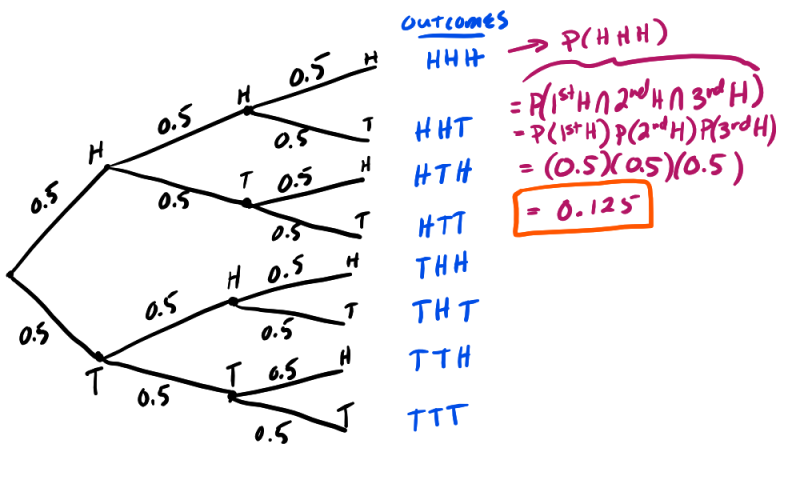 OUTCOMES
HHH → P(HHH)
= P(1st H ∩ 2nd H ∩ 3rd H)
= P(1st H) P(2nd H) P(3rd H)
= (0.5)(0.5)(0.5)
= 0.125
HHT
HTH
HTT
THH
THT
TTH
TTT
0.5 H
0.5 H
0.5 H
0.5 T
0.5 T
0.5 H
0.5 T
0.5 T
0.5 H
0.5 H
0.5 T
0.5 T
0.5 H
0.5 T